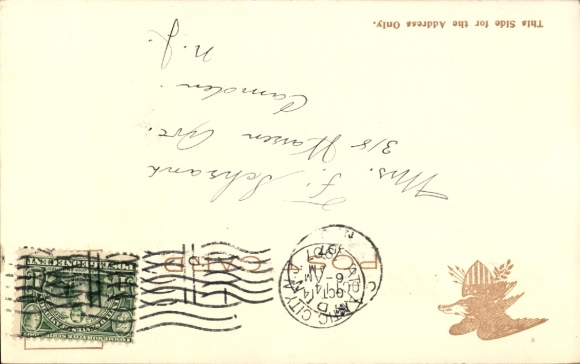 POST CARD
ATLANTIC CITY, N.J.
OCT 14
6-AM
1907
Mrs. F. Schrank
318 Ave.
Camden
N.J.
This Side for the Address Only.